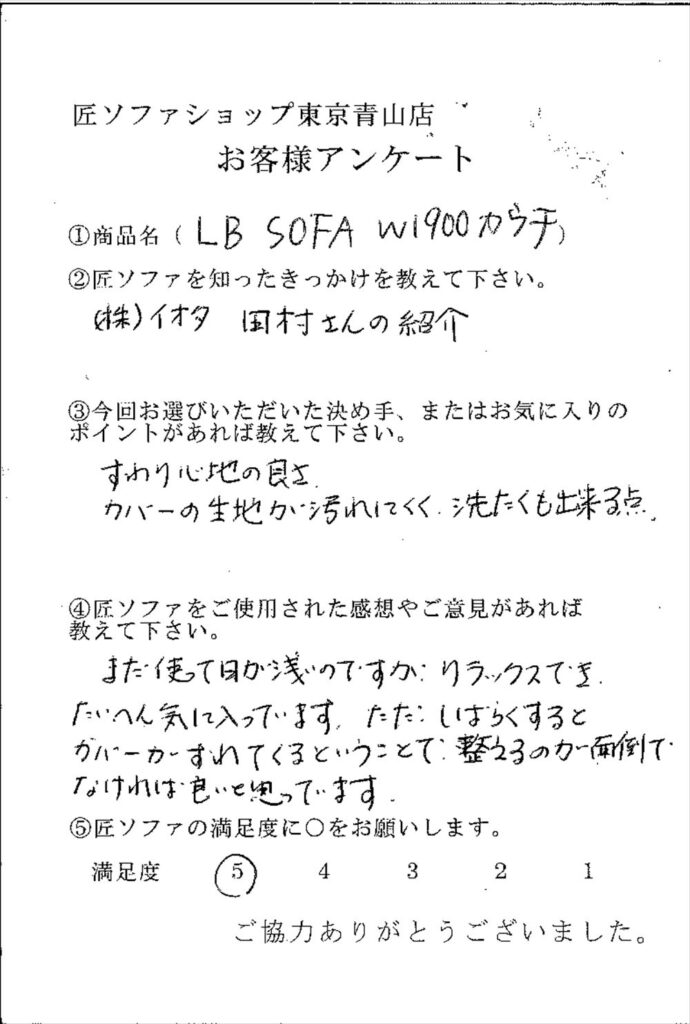 匠ソファショップ東京青山店
お客様アンケート
①商品名（ LB SOFA W1900カウチ）
②匠ソファを知ったきっかけを教えて下さい。
(株)イオタ 田村さんの紹介
③今回お選びいただいた決め手、またはお気に入りの
ポイントがあれば教えて下さい。
すわり心地の良さ
カバーの生地が汚れにくく、洗たくも出来る点。
④匠ソファをご使用された感想やご意見があれば
教えて下さい。
まだ使って日が浅いのですが、リラックスでき
たいへん気に入っています。ただ、しばらくすると
カバーがずれてくるということで、整えるのが面倒で
なければ良いと思ってます。
⑤匠ソファの満足度に○をお願いします。
満足度 5 4 3 2 1
ご協力ありがとうございました。